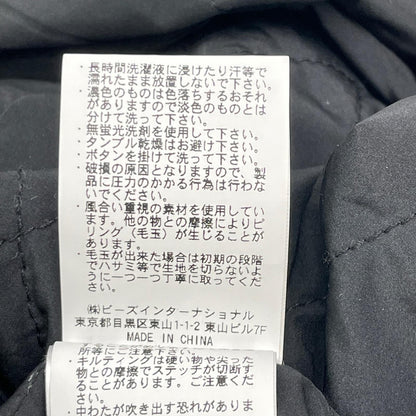 ・長時間洗濯液に浸けたり汗等で
濡れたまま放置しないで下さい。
・濃色のものは色落ちするおそれ
がありますので淡色のものとは
分けて洗って下さい。
・無蛍光洗剤を使用して下さい。
・タンブル乾燥はお避け下さい。
・ボタンを掛けて洗って下さい。
・破損の原因となりますので、製
品に圧力のかかる行為は行わない
で下さい。
・風合い重視の素材を使用してい
ます。他の物との摩擦によりピ
リング(毛玉)が生じることが
あります。
・毛玉が出来た場合は初期の段階
でハサミ等で生地を切らないよ
うに一つ一つ丁寧に取ってくだ
さい。
㈱ビーズインターナショナル
東京都目黒区東山1-1-2 東山ビル7F
MADE IN CHINA
所等にご注意下さい。
・キルティングは硬い物や尖った
物との摩擦でステッチが切断す
ることがあります。ご注意くだ
さい。
・中わたが吹き出す恐れがありま